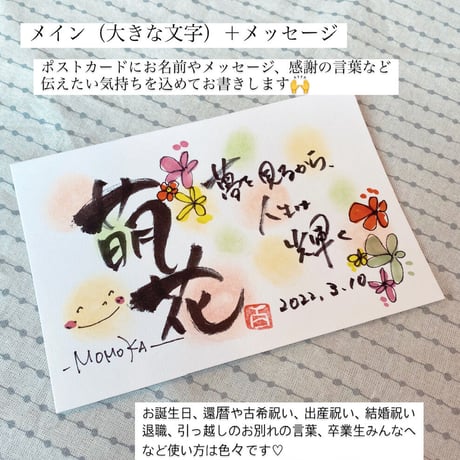 メイン（大きな文字）＋メッセージ
ポストカードにお名前やメッセージ、感謝の言葉など
伝えたい気持ちを込めてお書きします🙌
萌花
-MOMOKA-
夢を見るから、
人生は
輝く
2022.3.10
お誕生日、還暦や古希祝い、出産祝い、結婚祝い
退職、引っ越しのお別れの言葉、卒業生みんなへ
など使い方は色々です♡